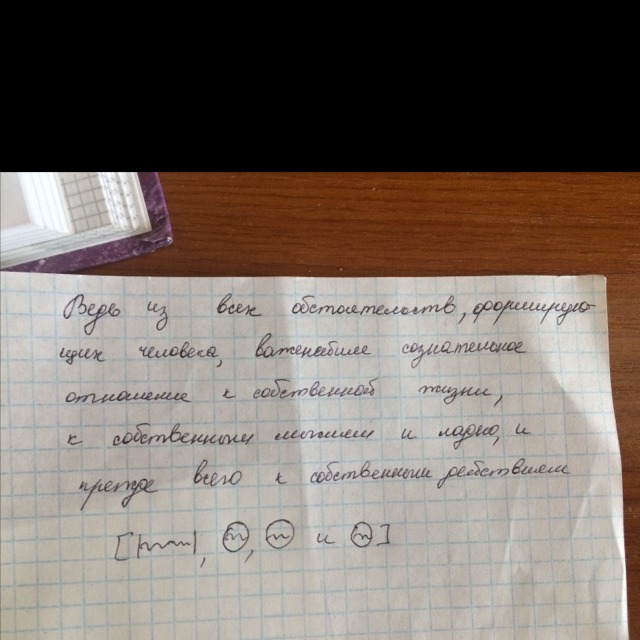 Ведь из всех обстоятельств, формирую-
щих человека, важнейшие сознательное
отношение к собственной жизни,
к собственным мыслям и ладно, и
прежде всего к собственным действиям
[, и ]